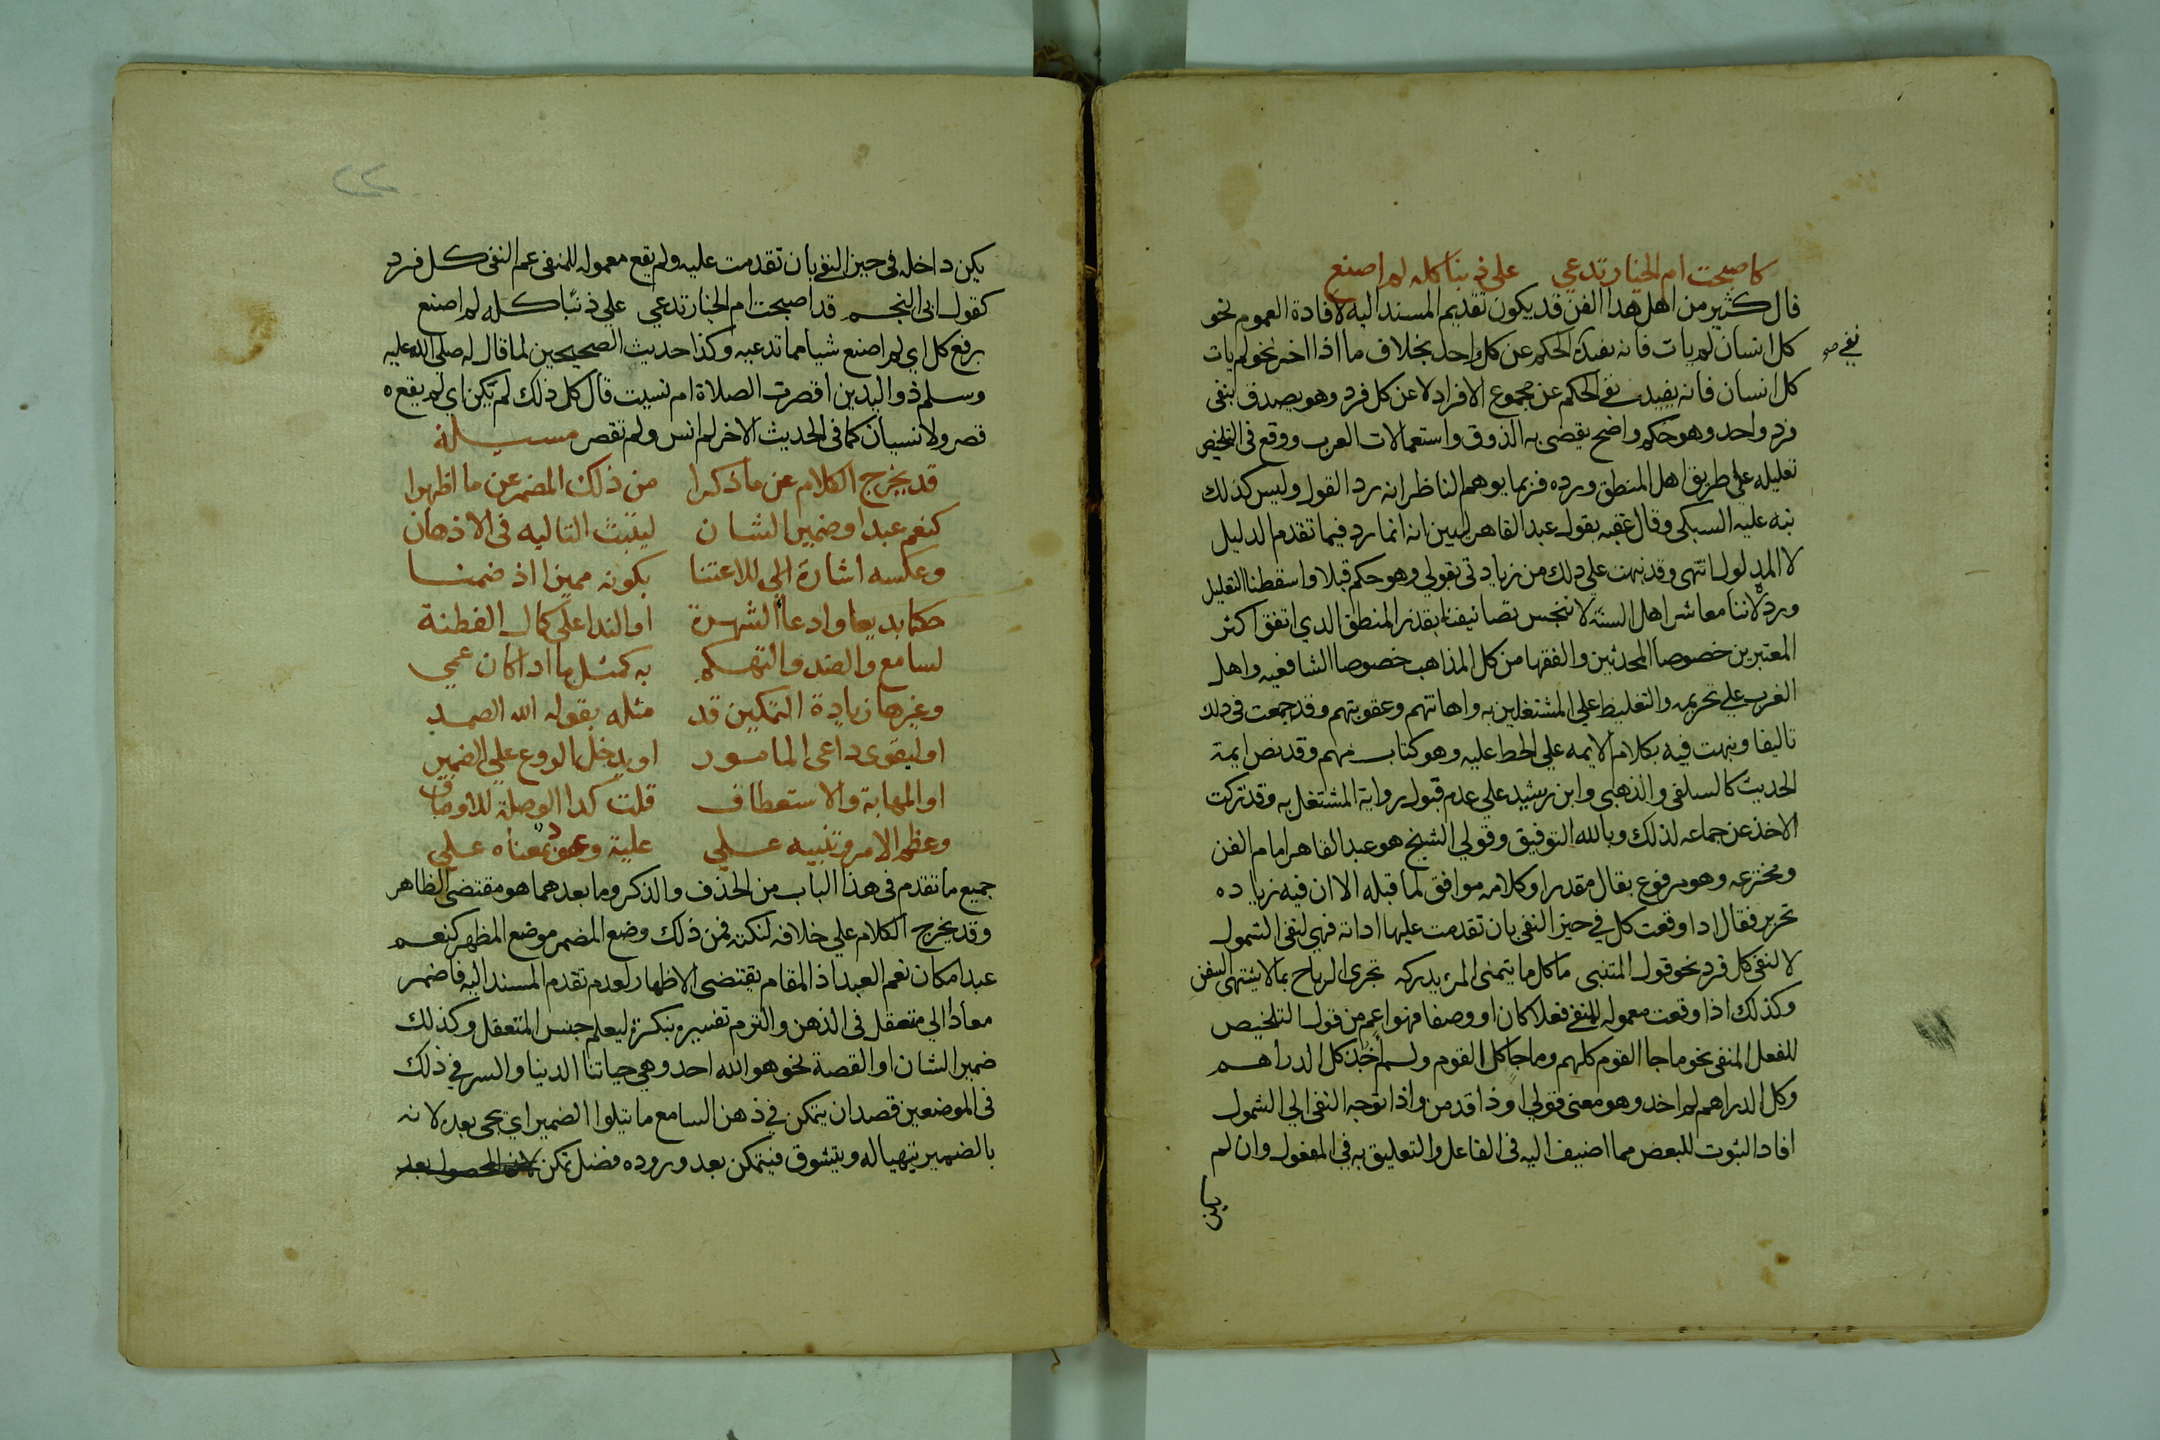 كاصبحت ام الخيار تدعي على ذنبا كله لم اصنع
قال كثير من اهل هذا الفن قد يكون تقديم المسند اليه لافادة العموم نحو
كل انسان لم يات فانه يفيد الحكم عن كل واحد بخلاف ما اذا اخر نحو لم يات
نفي صح
كل انسان فانه يفيد نفي الحكم عن مجموع الافراد لا عن كل فرد وهو يصدق بنفي
فرد واحد وهو حكم واضح يقضى به الذوق واستعمالات العرب ووقع في التلخيص
تعليله على طريق اهل المنطق ورده فربما يوهم الناظر انه رد القول وليس كذلك
نبه عليه السبكي وقال عقبه بقول عبد القاهر ليبين انه انما رد فيما تقدم الدليل
لا المدلول انتهى وقد نبهت على ذلك من زيادتى بقولي وهو حكم قبلا واسقطنا التعليل
ورده لاننا معاشر اهل السنة لا ننجس تصانيفنا بقذر المنطق الذي اتفق اكثر
المعتبرين خصوصا المحدثين والفقها من كل المذاهب خصوصا الشافعيه واهل
الغرب على تحريمه والتغليظ على المشتغلين به واهانتهم وعقوبتهم وقد جمعت في ذلك
تاليفا ونبهت فيه بكلام الايمه على الحط عليه وهو كتاب مهم وقد نص ايمة
الحديث كالسلفي والذهبي وابن رشيد على عدم قبول رواية المشتغل به وقد تركت
الاخذ عن جماعه لذلك وبالله التوفيق وقولي الشيخ هو عبد القاهر امام الفن
ومخترعه وهو مرفوع بقال مقدرا وكلامه موافق لما قبله الا ان فيه زياده
تحرير فقال اذا وقعت كل في حيز النفي بان تقدمت عليها اداته فهي لنفى الشمول
لا لنفى كل فرد نحو قول المتنبى ما كل ما يتمنى المرء يدركه تجرى الرياح بما لا يشتهى السفن
وكذلك اذا وقعت معموله للمنفي فعلا كان او وصفا فهوا عم من قول التلخيص
للفعل المنفى نحو ما جا القوم كلهم وما جا كل القوم ولم آخذ كل الدراهم
وكل الدراهم لم اخذ وهو معنى قولي او ذا قد من واذا توجه النفى الي الشمول
افاد الثبوت للبعض مما اضيف اليه في الفاعل والتعليق به في المفعول وان لم
يكن
٢٢
يكن داخله في حيز النفي بان تقدمت عليه ولم يقع معموله للمنفى عم النفى كل فرد
كقول ابى النجم قد اصبحت ام الخيار تدعي علي ذنبا كله لم اصنع
برفع كل اي لم اصنع شيا مما تدعيه وكذا حديث الصحيحين لما قال له صلى الله عليه
وسلم ذو اليدين اقصرت الصلاة ام نسيت قال كل ذلك لم يكن اي لم يقع ه
قصر ولا نسيان كما في الحديث الاخر لم انس ولم تقصر مسيلة
قد يخرج الكلام عن ما ذكرا من ذلك المضمر عن ما اظهرا
كنعم عبدا وضمير الشان ليثبت التاليه في الاذهان
وعكسه اشارة الي للاعتنا بكونه مميزا اذ ضمنا
حكما بديعا وادعا الشهرة او الندا على كمال الفطنة
لسامع والضد والتهكم به كمثل ما اذا كان عمي
وغيرها زيادة التمكين قد مثله بقوله الله الصمد
او ليقوى داعى المامور او يدخل الروع على الضمير
او المهابة والاستعطاف قلت كذا الوصلة للاوصاف
وعظم الامر وتنبيه علي علية وعود معناه علي
جميع ما تقدم في هذا الباب من الحذف والذكر وما بعدهما هو مقتضى الظاهر
وقد يخرج الكلام علي خلافه لنكتة فمن ذلك وضع المضمر موضع المظهر كنعم
عبدا مكان نعم العبد اذ المقام يقتضى الاظهار لعدم تقدم المسند اليه فاضمر
معادا الي متعقل في الذهن والتزم تفسيره بنكرة ليعلم جنس المتعقل وكذلك
ضمير الشان او القصة نحو هو الله احد وهي حياتنا الدنيا والسر في ذلك
في الموضعين قصد ان يتمكن في ذهن السامع ما يتلوا الضمير اي يجى بعده لانه
بالضمير يتهيا له ويتشوق فيتمكن بعد وروده فضل تمكن